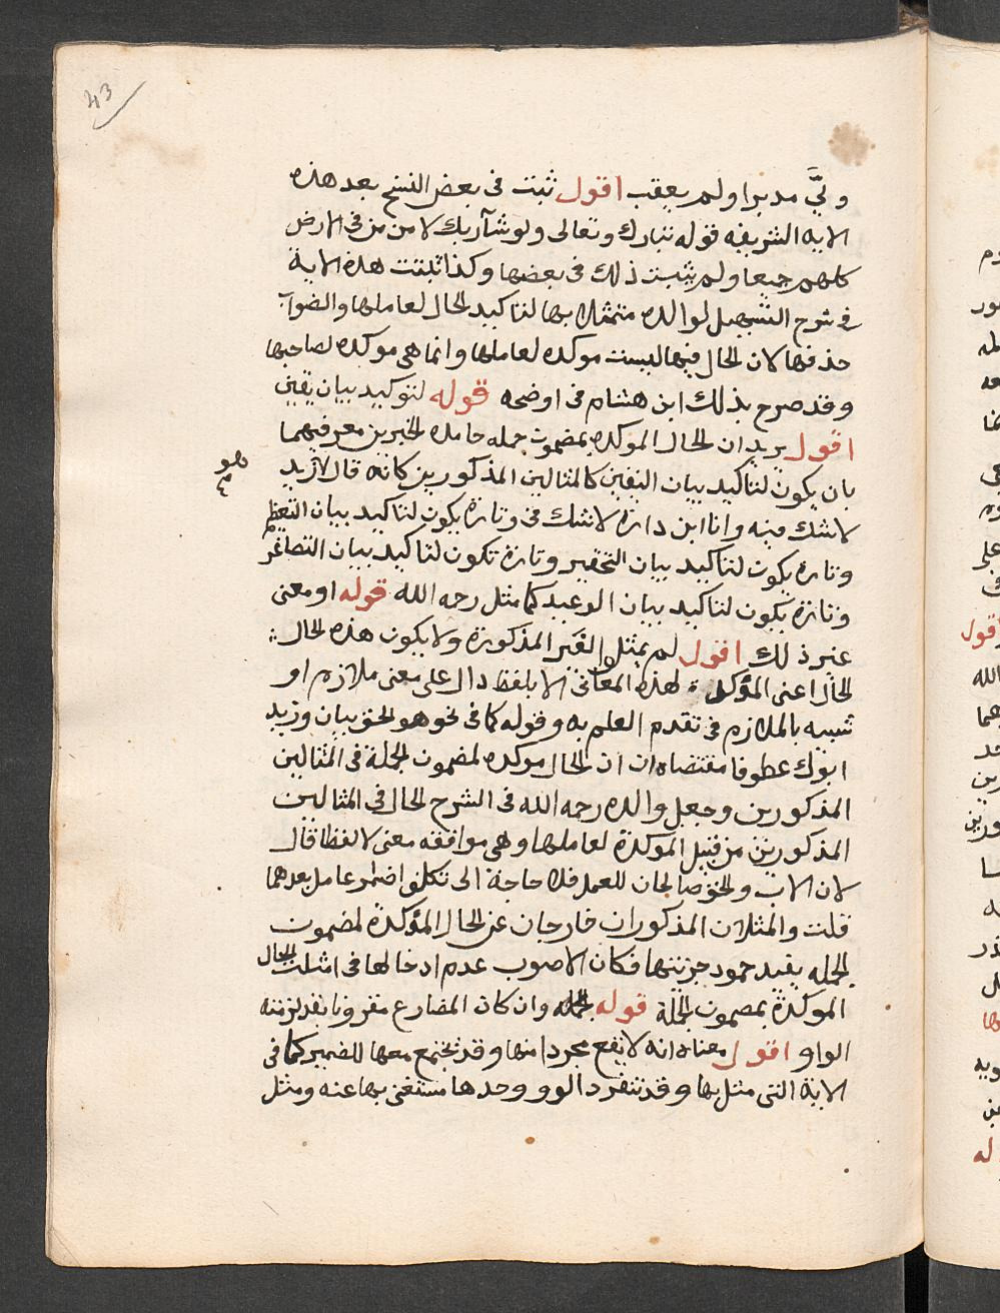 43
ولَّى مدبرا ولم يعقب اقول ثبت فى بعض النسخ بعد هذه
الاية الشريفه قوله تبارك وتعالى ولو شآ ربك لامن من فى الارض
كلهم جميعا ولم يثبت ذلك فى بعضها وكذا ثبتت هذه الاية
فى شرح التسهيل لوالده متمثلا بها لتاكيد الحال لعاملها والصواب
حذفها لان الحال فيها ليست موكده لعاملها وانما هى موكده لصاحبها
وقد صرح بذلك ابن هشام فى اوضحه قوله لتوكيد بيان يقين
اقول يريد ان الحال الموكده بمضمون جمله جامده الخبرين معرفيهما
بان يكون لتاكيد بيان اليقين كالمثالين المذكورين كانه قال لا زيد
هو
لاشك فيه وانا ابن دارة لاشك فى وتارة يكون لتاكيد بيان التعظيم
وتاره يكون لتاكيد بيان التحقير وتارة تكون لتاكيد بيان التصاغر
وتارة يكون لتاكيد بيان الوعيد كما مثل رحمه الله قوله او معنى
غير ذلك اقول لم يمثلوا الغير المذكورة ولا يكون هذه الحال
الحال اعنى المؤكده لهذه المعانى الا بلفظ دال على معنى ملازم او
شبيه بالملازم فى تقدم العلم به وقوله كما فى نحو هو الحق بيان وزيد
ابوك عطوفا مقتضاه ان ان الحال موكده لمضمون الجملة فى المثالين
المذكورين وجعل والده رحمه الله فى الشرح الحال فى المثالين
المذكورين من قبيل الموكدة لعاملها وهى موافقه معنى لا لفظا قال
لان الاب والحق صالحان للعمل فلا حاجة الى تكلف اضمار عامل بعدهما
قلت والمثلان المذكوران خارجان عن الحال المؤكدة لمضمون
الجمله بقيد جمود جزئيها فكان الاصوب عدم ادخالها فى امثلت الحال
الموكدة بمضمون الجملة قوله جمله وان كان المضارع مقرونا بقد لزمته
الواو اقول معناه انه لا يقع مجردا منها وقد يجتمع معها الضمير كما فى
الاية التى مثل بها وقد تنفرد الوو وحدها مستغنى بها عنه ومثل